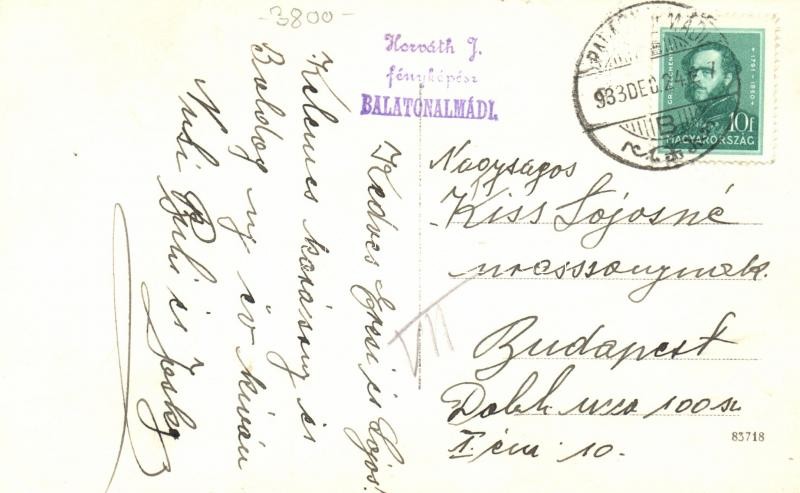 -3800-
Horváth J.
fényképész
BALATONALMÁDI.
933 DEC 24
GR. SZÉCHENYI
1791-1860
10f
MAGYARORSZÁG
Kedves Erzsi és Lajos!
Kelemes karácsony és
Boldog uj év kíván
Nusi és Joska
Nagyságos
Kiss Lajosné
urasszonynak.
Budapest
Dob ucca 100 sz
I em. 10.
83718